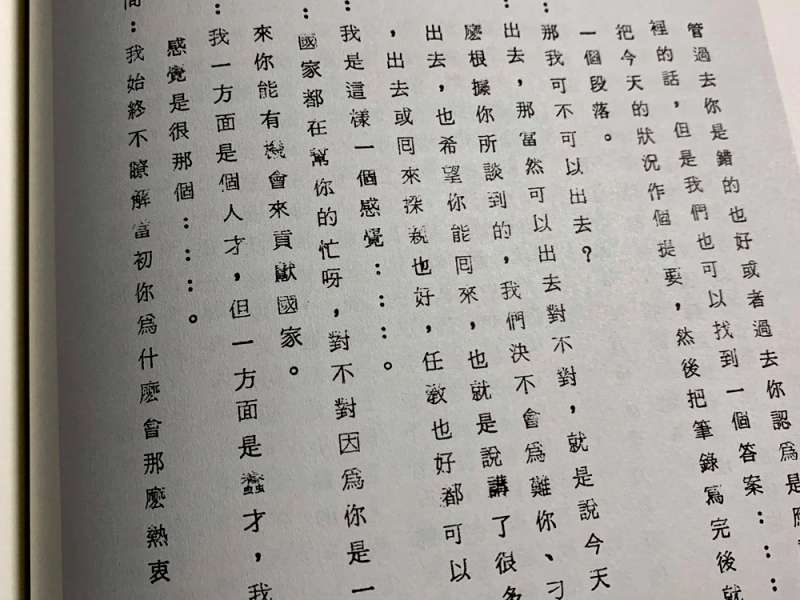 管過去你是錯的也好或者過去你認爲是
裡的話，但是我們也可以找到一個答案：：：
把今天的狀況作個提要，然後把筆錄寫完後就
一個段落。
：那我可不可以出去？
：出去，那當然可以出去對不對，就是說今天
麼根據你所談到的，我們決不會爲難你、刁
出去，也希望你能囘來，也就是說講了很多
，出去或囘來探親也好，任敎也好都可以
：我是這樣一個感覺：：：。
：國家都在幫你的忙呀，對不對因爲你是一
來你能有機會來貢獻國家。
：我一方面是個人才，但一方面是蠢才，我
感覺是很那個：：：。
：我始終不瞭解當初你爲什麼會那麼熱衷